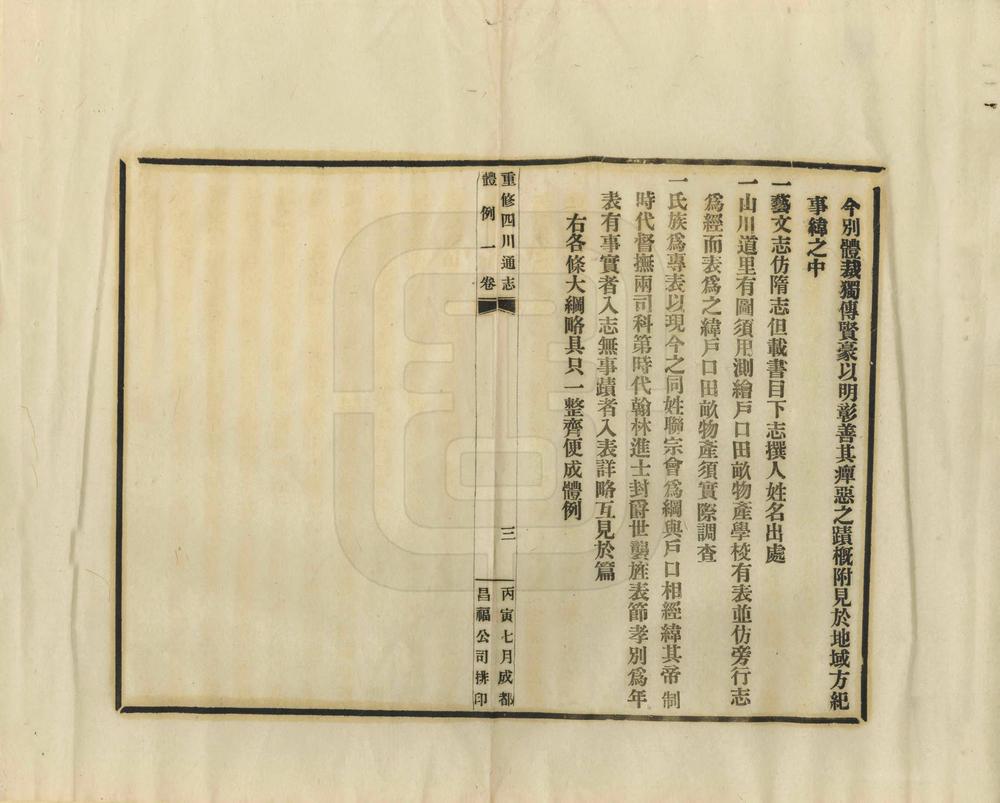 今別體裁獨傳賢豪以明彰善其癉惡之蹟槪附見於地域方紀
事緯之中
一藝文志仿隋志但載書目下志撰人姓名出處
一山川道里有圖須用測繪戶口田畝物產學校有表並仿旁行志
爲經而表爲之緯戶口田畝物產須實際調查
一氏族爲專表以現今之同姓聯宗會爲綱與戶口相經緯其帝制
時代督撫兩司科第時代翰林進士封爵世襲旌表節孝別爲年
表有事實者入志無事蹟者入表詳略互見於篇
右各條大綱略具只一整齊便成體例
重修四川通志
體例一卷
三
丙寅七月成都
昌福公司排印